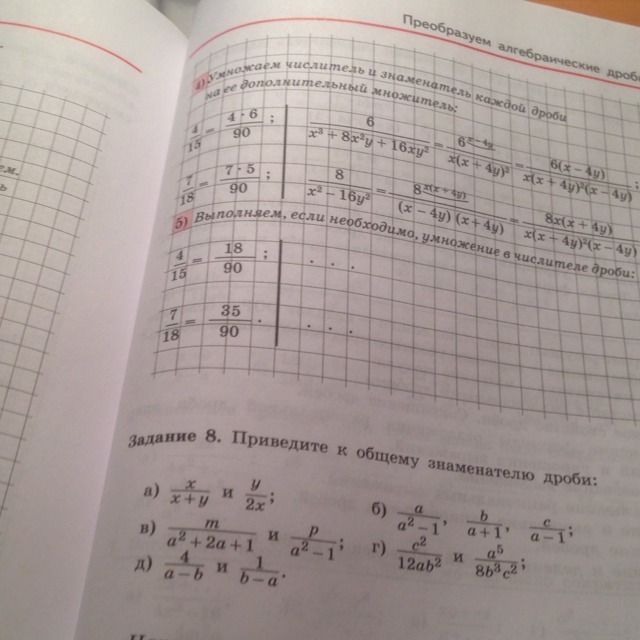 Преобразуем алгебраические дроби
4) Умножаем числитель и знаменатель каждой дроби
на ее дополнительный множитель:
4/15 = 4 · 6/90 ; 6/(x³ + 8x²y + 16xy²) = 6^(x − 4y)/(x(x + 4y)²) = 6(x − 4y)/(x(x + 4y)²(x − 4y)
7/18 = 7 · 5/90 ; 8/(x² − 16y²) = 8^(x(x + 4y))/((x − 4y)(x + 4y)) = 8x(x + 4y)/(x(x + 4y)²(x − 4y)
5) Выполняем, если необходимо, умножение в числителе дроби:
4/15 = 18/90 ; . . .
7/18 = 35/90 . . . .
Задание 8. Приведите к общему знаменателю дроби:
а) x/(x + y) и y/2x; б) a/(a² − 1), b/(a + 1), c/(a − 1);
в) m/(a² + 2a + 1) и p/(a² − 1); г) c²/12ab² и a⁵/8b³c²;
д) 4/(a − b) и 1/(b − a).